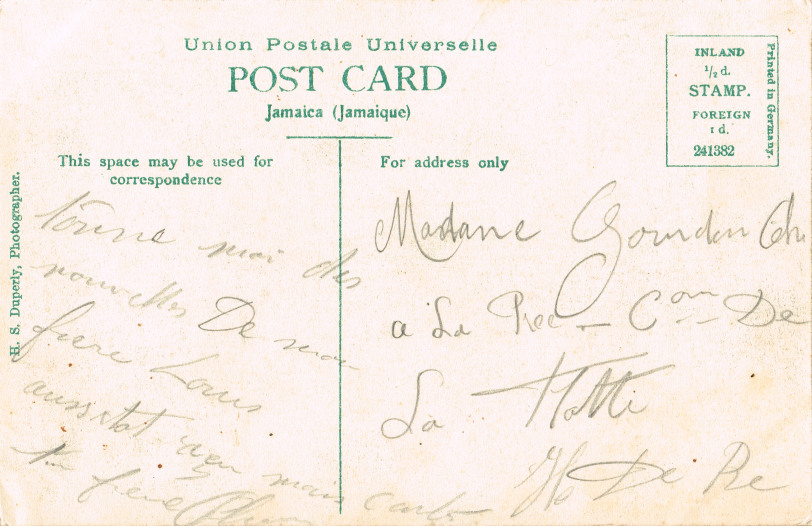 Union Postale Universelle
POST CARD
Jamaica (Jamaique)
INLAND
1/2 d.
STAMP.
FOREIGN
1 d.
241382
Printed in Germany.
This space may be used for
correspondence
For address only
H. S. Duperly, Photographer.
Donne moi des
nouvelles De mon
frere Louis
aussitot
ton frere
Madame Gourdon
a La Pree - Com - De
La Flotte
Ile De Re